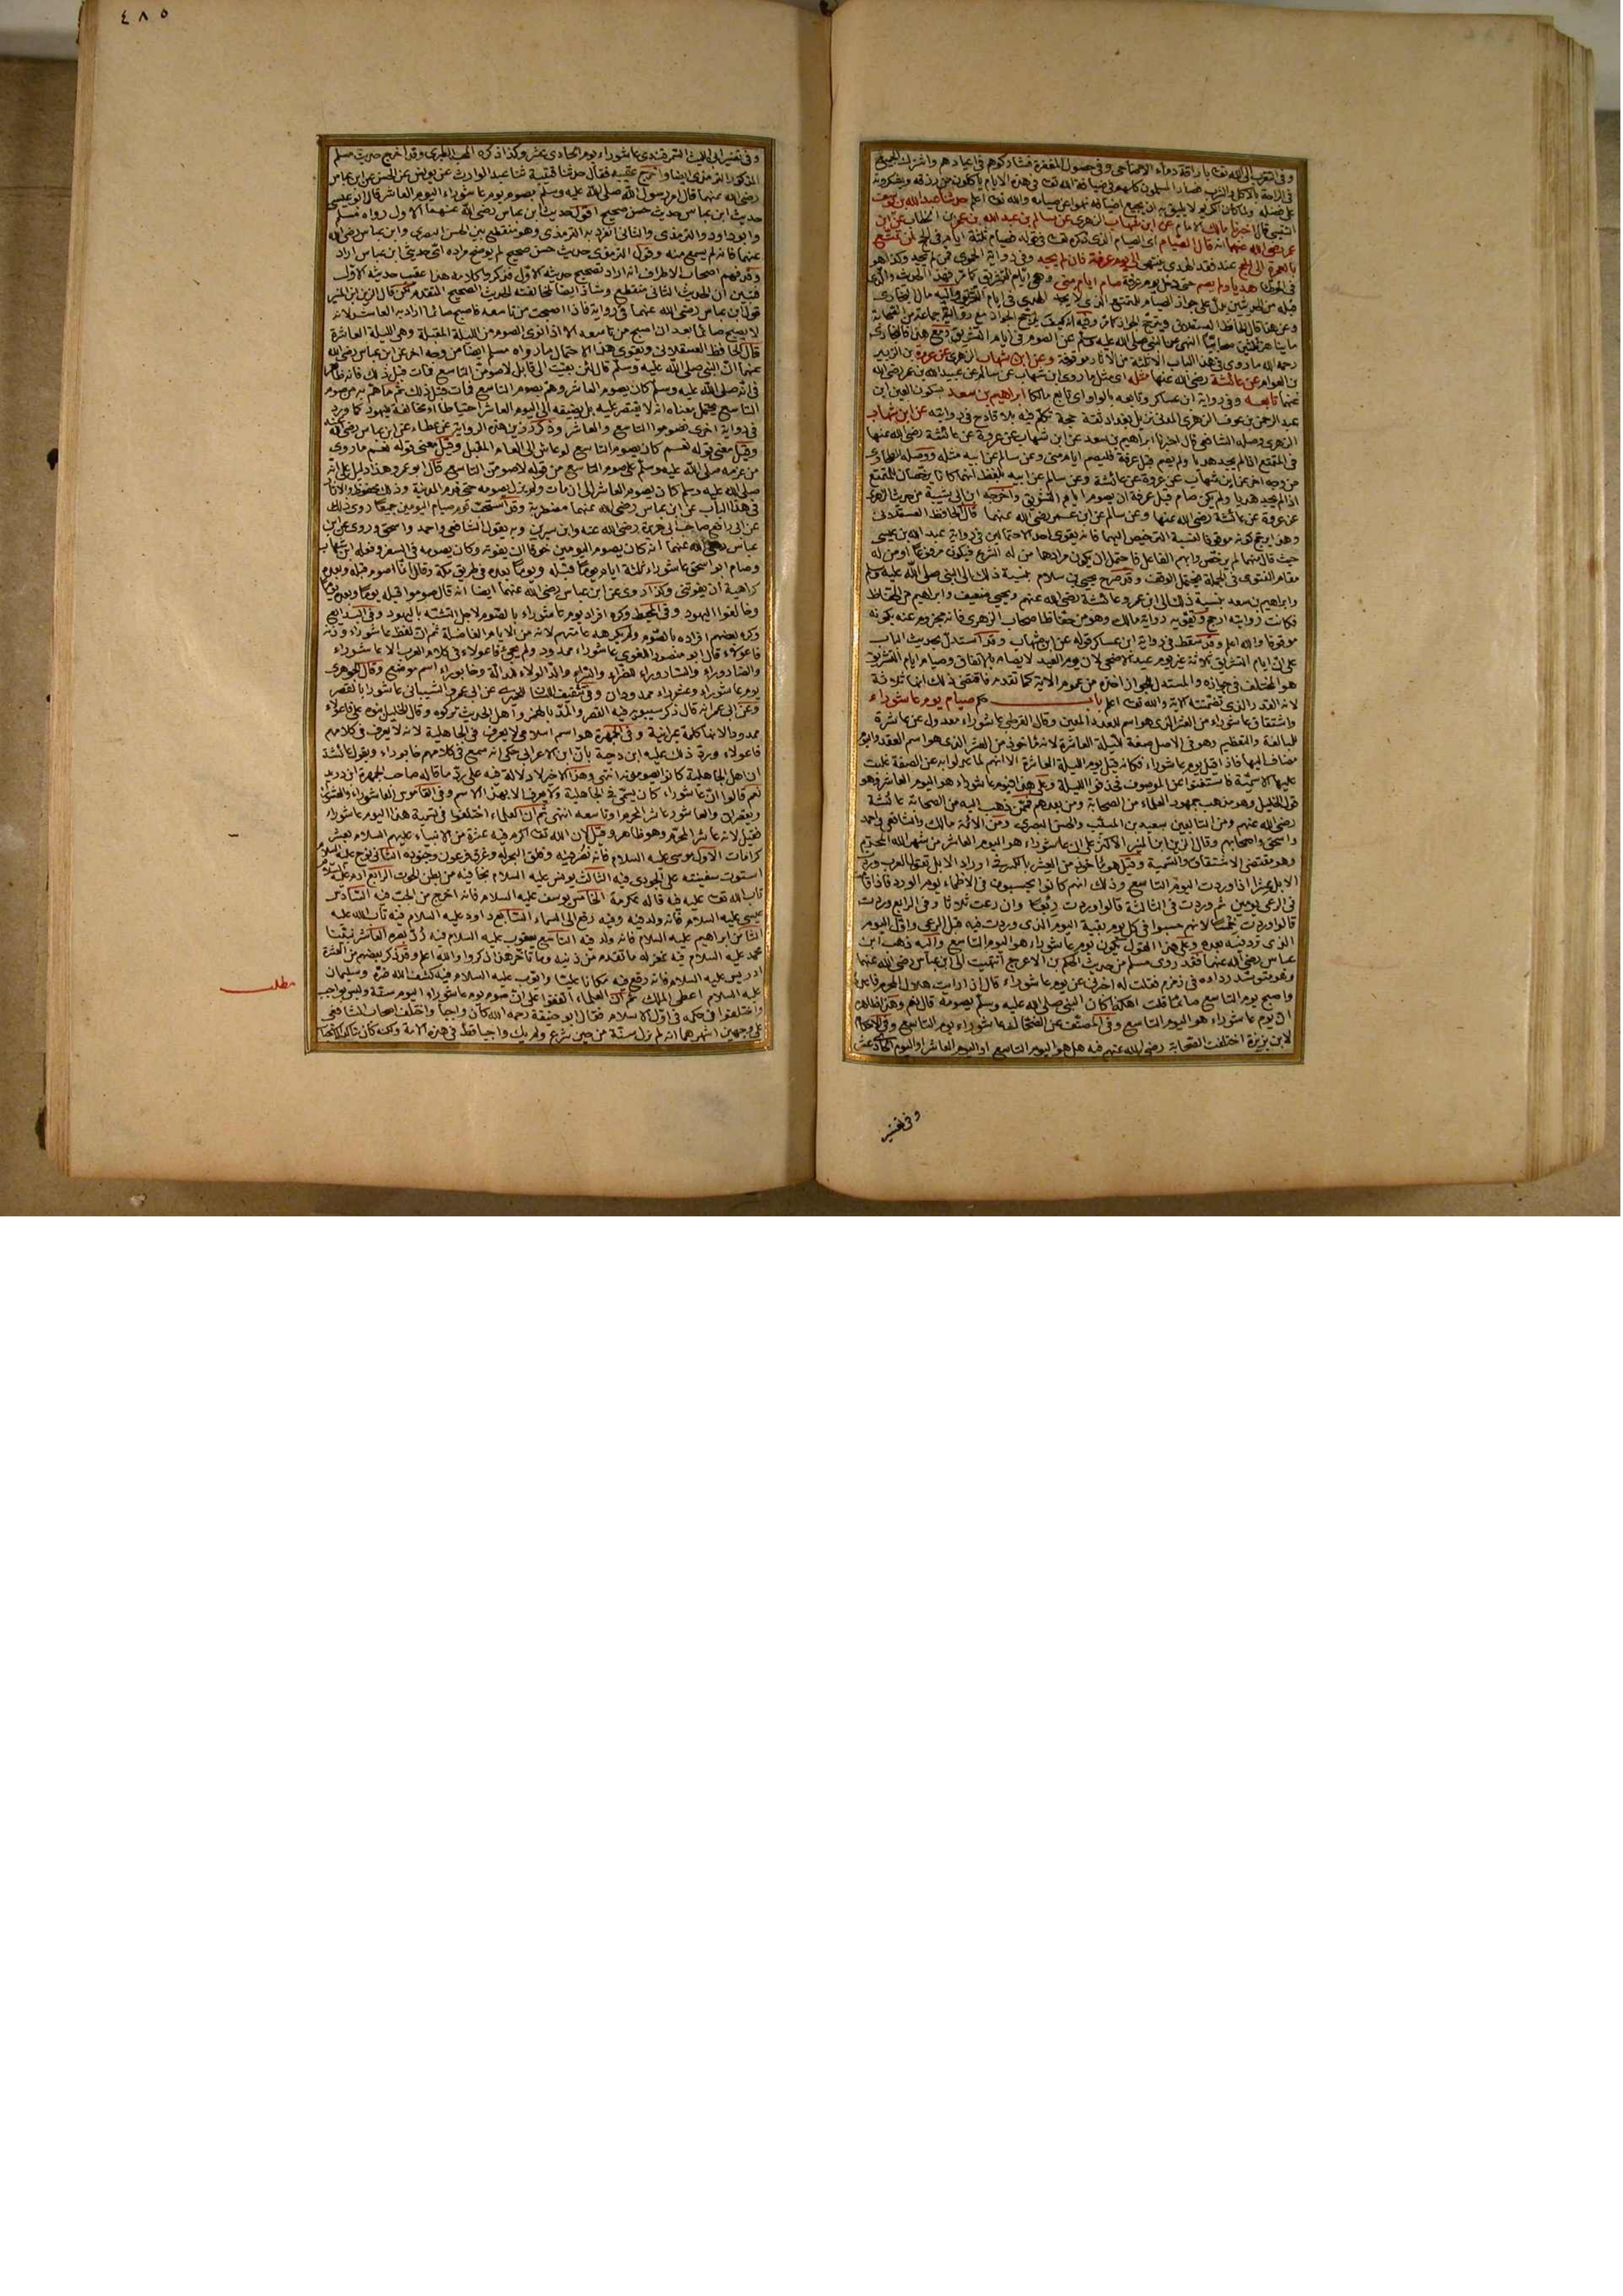 ٤٨٥
وفى التقرب الى الله تعالى باراقة دماء الاضاحى وفى حصول المغفرة فشاركوهم فى اعيادهم واشترك الجميع
فى الراحة بالاكل والشرب فصار المسلمون كلهم فى ضيافة الله تعالى فى هذه الايام ياكلون من رزقه ويشكرونه
على فضله ولما كان الكريم لا يليق به ان يجيع اضيافه نهوا عن صيامه والله تعالى اعلم حدثنا عبد الله بن يوسف
التنيسى قال اخبرنا مالك الامام عن ابن شهاب الزهرى عن سالم بن عبد الله بن عمر بن الخطاب عن ابن
عمر رضى الله عنهما انه قال الصيام اى الصيام الذى ذكره تعالى فى قوله فصيام ثلثة ايام فى الحج لمن تمتع
بالعمرة الى الحج عند فقد الهدى ينتهى الى يوم عرفة فان لم يجد وفى رواية الحموى فمن لم يجد وكذا هو
فى الموطأ هديا ولم يصم حتى دخل يوم عرفة صام ايام منى وهى ايام التشريق كما مر فهذا الحديث والذى
قبله من الحديثين يدل على جواز الصيام للمتمتع الذى لا يجد الهدى فى ايام التشريق واليه مال البخارى
رحمه الله ما روى فى هذا الباب الا ثلثة من الآثار موقوفة وعن ابن شهاب الزهرى عن عروة بن الزبير
بن العوام عن عائشة رضى الله عنها مثله اى مثل ما روى ابن شهاب عن سالم عن عبد الله بن عمر رضى الله
عنهما تابعه وفى رواية ابن عساكر وتابعه بالواو اى تابع مالكا ابراهيم بن سعد بسكون العين ابن
عبد الرحمن بن عوف الزهرى المدنى نزيل بغداد ثقة حجة تكلم فيه بلا قادح فى روايته عن ابن شهاب
الزهرى وصله الشافعى قال اخبرنا ابراهيم بن سعد عن ابن شهاب عن عروة عن عائشة رضى الله عنها
فى المتمتع اذا لم يجد هديا ولم يصم قبل عرفة فليصم ايام منى وعن سالم عن ابيه مثله ووصله الطحاوى
من وجه آخر عن ابن شهاب عن عروة عن عائشة وعن سالم عن ابيه بلفظ انهما كانا يرخصان للمتمتع
اذا لم يجد هديا ولم يكن صام قبل عرفة ان يصوم ايام التشريق واخرجه ابن ابى شيبة من حديث الزهرى
عن عروة عن عائشة رضى الله عنها وعن سالم عن ابن عمر رضى الله عنهما قال الحافظ العسقلانى
وهذا يرجح كونه موقوفا لنسبة الترخيص اليهما فانه يقوى احد الاحتمالين فى رواية عبد الله بن عيسى
حيث قال فيها لم يرخص وابهم الفاعل فاحتمل ان يكون مرادهما من له الشرع فيكون مرفوعا او من له
مقام الفتوى فى الجملة فيحتمل الوقف وقد صرح يحيى بن سلام بنسبة ذلك الى النبى صلى الله عليه وسلم
وابراهيم بن سعد بنسبة ذلك الى ابن عمر وعائشة رضى الله عنهم ويحيى ضعيف وابراهيم من الحفاظ
فكانت روايته ارجح وتقويه رواية مالك وهو من حفاظ اصحاب الزهرى فانه مجزوم عنه بكونه
موقوفا والله اعلم وقد سقط فى رواية ابن عساكر قوله عن ابن شهاب وقد استدل بحديث الباب
على ان ايام التشريق ثلاثة غير يوم عيد الاضحى لان يوم العيد لا يصام بالاتفاق وصيام ايام التشريق
هو المختلف فى جوازه والمستدل بالجواز اخذه من عموم الآية كما تقدم فاقتضى ذلك انها ثلاثة
لانه القدر الذى تضمنته الآية والله تعالى اعلم باب حكم صيام يوم عاشوراء
واشتقاق عاشوراء من العشر الذى هو اسم للعدد المعين وقال القرطبى عاشوراء معدول عن عاشرة
للمبالغة والتعظيم وهو فى الاصل صفة لليلة العاشرة لانه مأخوذ من العشر الذى هو اسم العقد واليوم
مضاف اليها فاذا قيل يوم عاشوراء فكانه قيل يوم الليلة العاشرة الا انهم لما عدلوا به عن الصفة غلبت
عليها الاسمية فاستغنوا عن الموصوف فحذفوا الليلة وعلى هذا فيوم عاشوراء هو اليوم العاشر وهو
قول الخليل وهو مذهب جمهور العلماء من الصحابة ومن بعدهم فممن ذهب اليه من الصحابة عائشة
رضى الله عنهم ومن التابعين سعيد بن المسيب والحسن البصرى ومن الائمة مالك والشافعى واحمد
واسحق واصحابهم وقال الزين ابن المنير الاكثر على ان عاشوراء هو اليوم العاشر من شهر الله المحرم
وهو مقتضى الاشتقاق والتسمية وقيل هو مأخوذ من العشر بالكسر فى اوراد الابل تقول العرب وردت
الابل عشرا اذا وردت اليوم التاسع وذلك انهم كانوا يحسبون فى الاظماء يوم الورد فاذا اقامت
فى الرعى يومين ثم وردت فى الثالثة قالوا وردت ربعا وان رعت ثلاثا وفى الرابع وردت
قالوا وردت خمسا لانهم حسبوا فى كل بقية اليوم الذى وردت فيه قبل الرعى واول اليوم
الذى ترد فيه بعده وعلى هذا القول يكون يوم عاشوراء هو اليوم التاسع واليه ذهب ابن
عباس رضى الله عنهما فقد روى مسلم من حديث الحكم بن الاعرج انتهيت الى ابن عباس رضى الله عنهما
وهو متوسد رداءه فى زمزم فقلت له اخبرنى عن يوم عاشوراء قال اذا رايت هلال المحرم فاعدد
واصبح يوم التاسع صائما قلت اهكذا كان النبى صلى الله عليه وسلم يصومه قال نعم وهذا ظاهره
ان يوم عاشوراء هو اليوم التاسع وفى المصنف عن الضحاك عاشوراء يوم التاسع وفى الاحكام
لابن بزيزة اختلفت الصحابة رضى الله عنهم فيه هل هو اليوم التاسع او اليوم العاشر او اليوم الحادى عشر
وفى تفسير
وفى تفسير ابى الليث السمرقندى عاشوراء يوم الحادى عشر وكذا ذكره المحب الطبرى وقد اخرج حديث مسلم
المذكور الترمذى ايضا واخرج عقيبه فقال حدثنا قتيبة ثنا عبد الوارث عن يونس عن الحسن عن ابن عباس
رضى الله عنهما قال امر رسول الله صلى الله عليه وسلم بصوم يوم عاشوراء اليوم العاشر قال ابو عيسى
حديث ابن عباس حديث حسن صحيح اقول حديث ابن عباس رضى الله عنهما الاول رواه مسلم
وابو داود والترمذى والثانى انفرد به الترمذى وهو منقطع بين الحسن البصرى وابن عباس رضى الله
عنهما فانه لم يسمع منه وقول الترمذى حديث حسن صحيح لم يوضح مراده اى حديثى ابن عباس اراد
وقد فهم اصحاب الاطراف انه اراد تصحيح حديثه الاول فذكروا كلامه هذا عقيب حديثه الاول
فتبين ان الحديث الثانى منقطع وشاذ ايضا لمخالفته للحديث الصحيح المتقدم لكن قال الزين ابن المنير
قول ابن عباس رضى الله عنهما فى رواية فاذا اصبحت من تاسعه فاصبح صائما اراد به العاشر لانه
لا يصبح صائما بعد ان اصبح من تاسعه الا اذا نوى الصوم من الليلة المقبلة وهى الليلة العاشرة
قال الحافظ العسقلانى ويقوى هذا الاحتمال ما رواه مسلم ايضا من وجه آخر عن ابن عباس رضى الله
عنهما ان النبى صلى الله عليه وسلم قال لئن بقيت الى قابل لاصومن التاسع فمات قبل ذلك فانه ظاهر
فى انه صلى الله عليه وسلم كان يصوم العاشر وهم بصوم التاسع فمات قبل ذلك ثم ما هم به من صوم
التاسع يحتمل معناه انه لا يقتصر عليه بل يضيفه الى اليوم العاشر احتياطا او مخالفة لليهود كما ورد
فى رواية اخرى فصوموا التاسع والعاشر وذكر رزين هذه الرواية عن عطاء عن ابن عباس رضى الله عنهما
وقيل معنى قوله نعم كان يصوم التاسع لو عاش الى العام المقبل وقيل معنى قوله نعم ما روى
من عزمه صلى الله عليه وسلم على صوم التاسع من قوله لاصومن التاسع قال ابو عمر وهذا دليل على انه
صلى الله عليه وسلم كان يصوم العاشر الى ان مات ولم يزل يصومه حتى قدم المدينة وذلك محفوظ والآثار
فى هذا الباب عن ابن عباس رضى الله عنهما مضطربة وقد استحب قوم صيام اليومين جميعا روى ذلك
عن ابى رافع صاحب ابى هريرة رضى الله عنه وابن سيرين وبه يقول الشافعى واحمد واسحق وروى عن ابن
عباس رضى الله عنهما انه كان يصوم اليومين خوفا ان يفوته وكان يصومه فى السفر وفعله ابن شهاب
وصام ابو اسحق عاشوراء ثلثة ايام يوما قبله ويوما بعده فى طريق مكة وقال انما اصوم قبله وبعده
كراهية ان يفوتنى وكذا روى عن ابن عباس رضى الله عنهما ايضا انه قال صوموا قبله يوما وبعده يوما
وخالفوا اليهود وفى المحيط وكره افراد يوم عاشوراء بالصوم لاجل التشبه باليهود وفى البدايع
وكره بعضهم افراده بالصوم ولم يكرهه عامتهم لانه من الايام الفاضلة ثم ان لفظ عاشوراء وزنه
فاعولاء قال ابو منصور اللغوى عاشوراء ممدود ولم يجئ فاعولاء فى كلام العرب الا عاشوراء
والضاروراء والساروراء للضراء والسراء والدالولاء للدالة وخابوراء اسم موضع وقال الجوهرى
يوم عاشوراء وعشوراء ممدودان وفى تثقيف اللسان عن ابى عمرو الشيبانى عاشورا بالقصر
وعن ابى عمر انه قال ذكر سيبويه فيه القصر والمد بالهمز واهل الحديث تركوه وقال الخليل بنوه على فاعولاء
ممدودا لانها كلمة عبرانية وفى الجمهرة هو اسم اسلامى لا يعرف فى الجاهلية لانه لا يعرف فى كلامهم
فاعولاء ورد ذلك عليه ابن دحية بان ابن الاعرابى حكى انه سمع فى كلامهم خابوراء وبقول عائشة
ان اهل الجاهلية كانوا يصومونه انتهى وهذا الاخير لا دلالة فيه على رد ما قاله صاحب الجمهرة ابن دريد
نعم قالوا ان عاشوراء كان يسمى فى الجاهلية ولا يعرف الا بهذا الاسم وفى القاموس العاشوراء والعشوراء
ويقصران والعاشور عاشر المحرم او تاسعه انتهى ثم ان العلماء اختلفوا فى تسمية هذا اليوم عاشوراء
فقيل لانه عاشر المحرم وهو ظاهر وقيل لان الله تعالى اكرم فيه عشرة من الانبياء عليهم السلام بعشر
كرامات الاول موسى عليه السلام فانه نصر فيه وفلق البحر له وغرق فرعون وجنوده الثانى نوح عليه السلام
استوت سفينته على الجودى فيه الثالث يونس عليه السلام نجا فيه من بطن الحوت الرابع آدم عليه السلام
تاب الله تعالى عليه فيه قاله عكرمة الخامس يوسف عليه السلام فانه اخرج من الجب فيه السادس
عيسى عليه السلام فانه ولد فيه وفيه رفع الى السماء السابع داود عليه السلام فيه تاب الله عليه
الثامن ابراهيم عليه السلام فانه ولد فيه التاسع يعقوب عليه السلام فيه رد بصره العاشر نبينا
محمد عليه السلام فيه غفر له ما تقدم من ذنبه وما تاخر هذا ذكروا والله اعلم وقد ذكر بعضهم من العشرة
ادريس عليه السلام فانه رفع فيه مكانا عليا وايوب عليه السلام فيه كشف الله ضره وسليمان
عليه السلام اعطى الملك ثم ان العلماء اتفقوا على ان صوم يوم عاشوراء اليوم سنة وليس بواجب
واختلفوا فى حكمه فى اول الاسلام فقال ابو حنيفة رحمه الله كان واجبا واختلف اصحاب الشافعى
على وجهين اشهرهما انه لم يزل سنة من حين شرع ولم يك واجبا قط فى هذه الامة ولكنه كان متاكد الاستحباب
مطلب